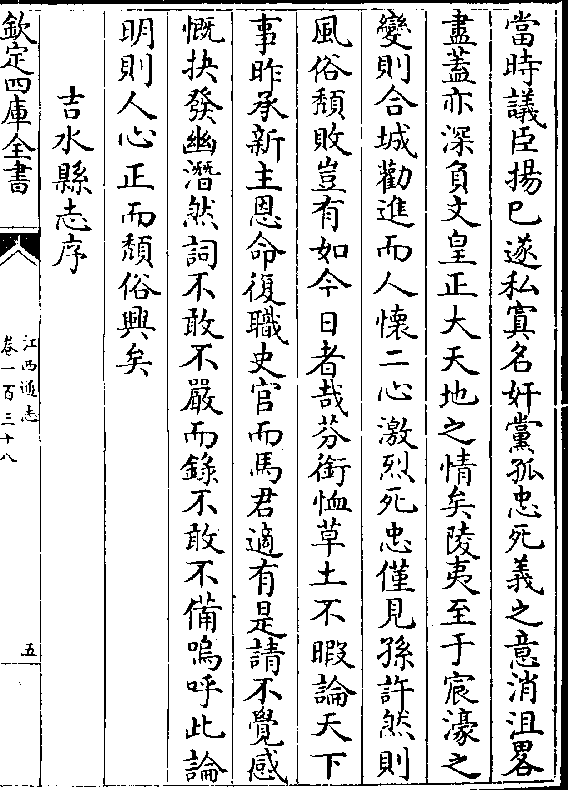 當時議臣揚已遂私寘名奸黨孤忠死義之意消沮畧
盡蓋亦深負文皇正大天地之情矣陵夷至于宸濠之
變則合城勸進而人懷二心激烈死忠僅見孫許然則
風俗頹敗豈有如今日者哉芬銜恤草土不暇論天下
事昨承新主恩命復職史官而馬君適有是請不覺感
慨抉發幽潛然詞不敢不嚴而錄不敢不備嗚呼此論
明則人心正而頹俗興矣
吉水縣志序
欽定四庫全書
江西通志
卷一百三十八
五